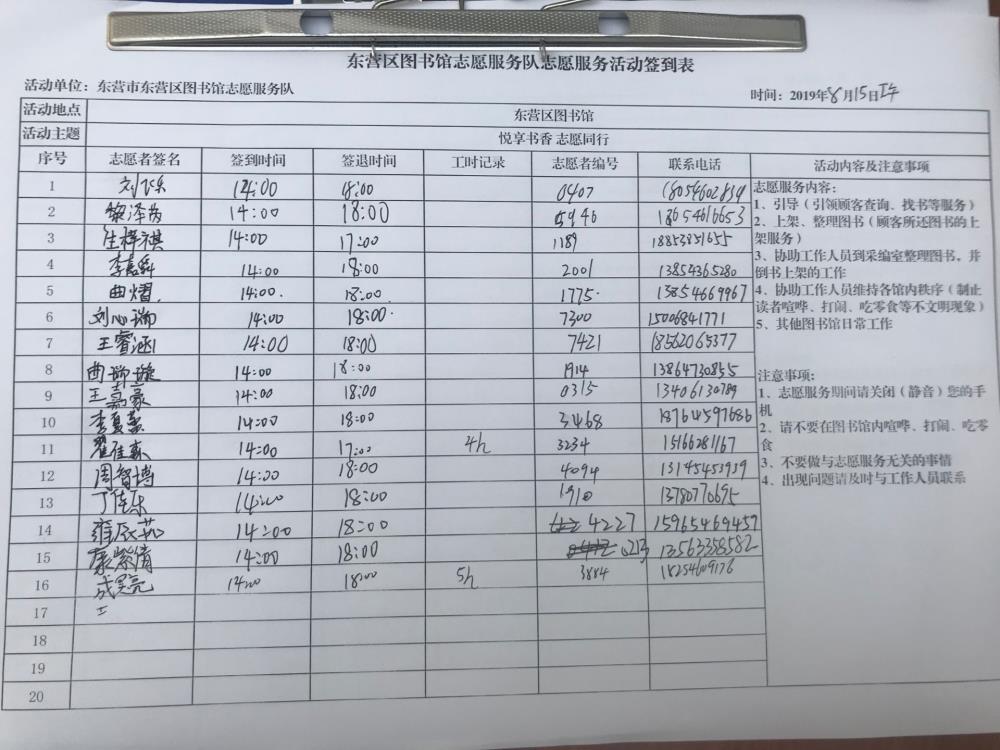 东营区图书馆志愿服务队志愿服务活动签到表
活动单位：东营市东营区图书馆志愿服务队
时间：2019年8月15日下午
活动地点 东营区图书馆
活动主题 悦享书香 志愿同行
序号 志愿者签名 签到时间 签退时间 工时记录 志愿者编号 联系电话 活动内容及注意事项
1 14:00 18:00 0407 18054602834
2 黎泽芮 14:00 18:00 5946 18654616653
3 14:00 17:00 1189 18853851655
4 李嘉舜 14:00 18:00 2001 13854365280
5 曲熠 14:00. 18:00. 1775. 13854669967
6 刘心瑞 14:00 18:00. 7300 15006841771
7 王睿涵 14:00 18:00 7421 18562065377
8 曲珈璇 14:00 18:00 1914 13864730855
9 王嘉豪 14:00 18:00 0315 13406130789
10 李夏蕊 14:00 18:00 3468 18764597686
11 翟佳森 14:00 17:00 4h 3234 15166281167
12 周智博 14:00 18:00 4094 13145453939
13 丁佳乐 14:00 18:00 1910 13780770695
14 14:00 18:00 4227 15965469457
15 14:00 18:00 13563358582
16 成昊亮 14:00 18:00 5h 3884 18254609176
17
18
19
20
志愿服务内容：
1、引导（引领顾客查询、找书等服务）
2、上架、整理图书（顾客所还图书的上
架服务）
3、协助工作人员到采编室整理图书，并
倒书上架的工作
4、协助工作人员维持各馆内秩序（制止
读者喧哗、打闹、吃零食等不文明现象）
5、其他图书馆日常工作
注意事项：
1、志愿服务期间请关闭（静音）您的手
机
2、请不要在图书馆内喧哗、打闹、吃零
食
3、不要做与志愿服务无关的事情
4、出现问题请及时与工作人员联系